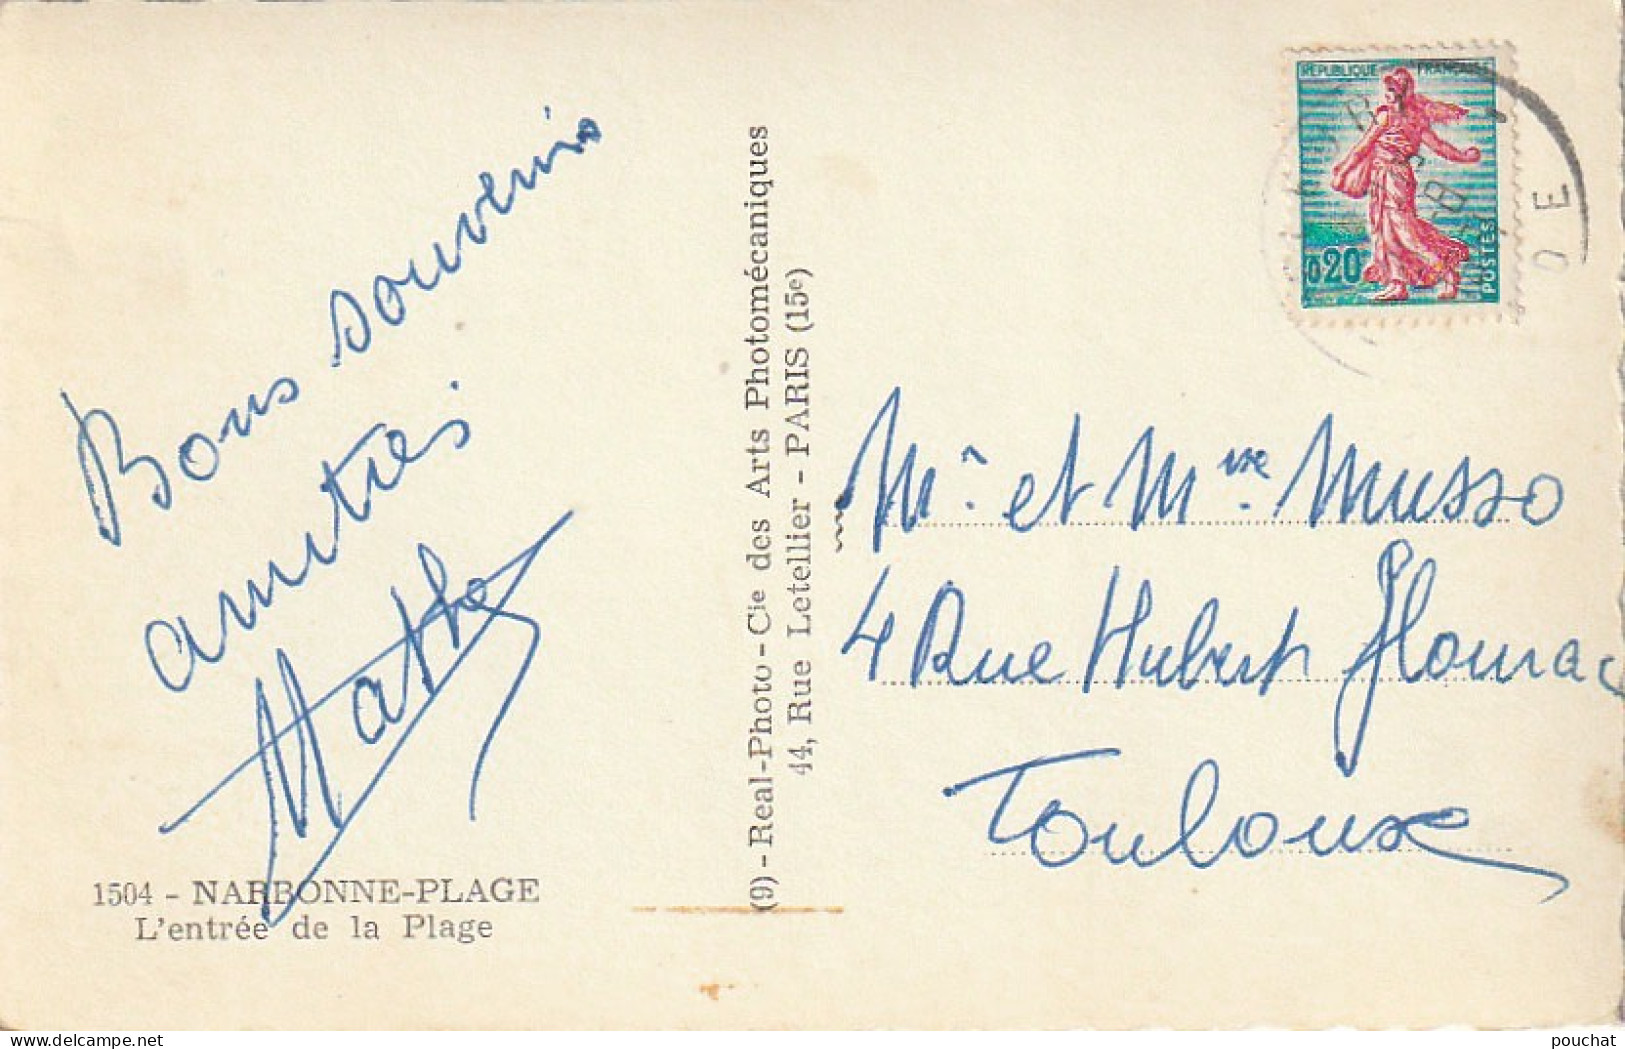 Bons souvenirs
amitiés
1504 - NARBONNE-PLAGE
L'entrée de la Plage
(9) - Real-Photo - Cie des Arts Photomécaniques
44, Rue Letellier - PARIS (15e)
REPUBLIQUE FRANÇAISE
0,20
POSTES
Mr et Mme Musso
4 Rue Hubert
Toulouse
pouchat